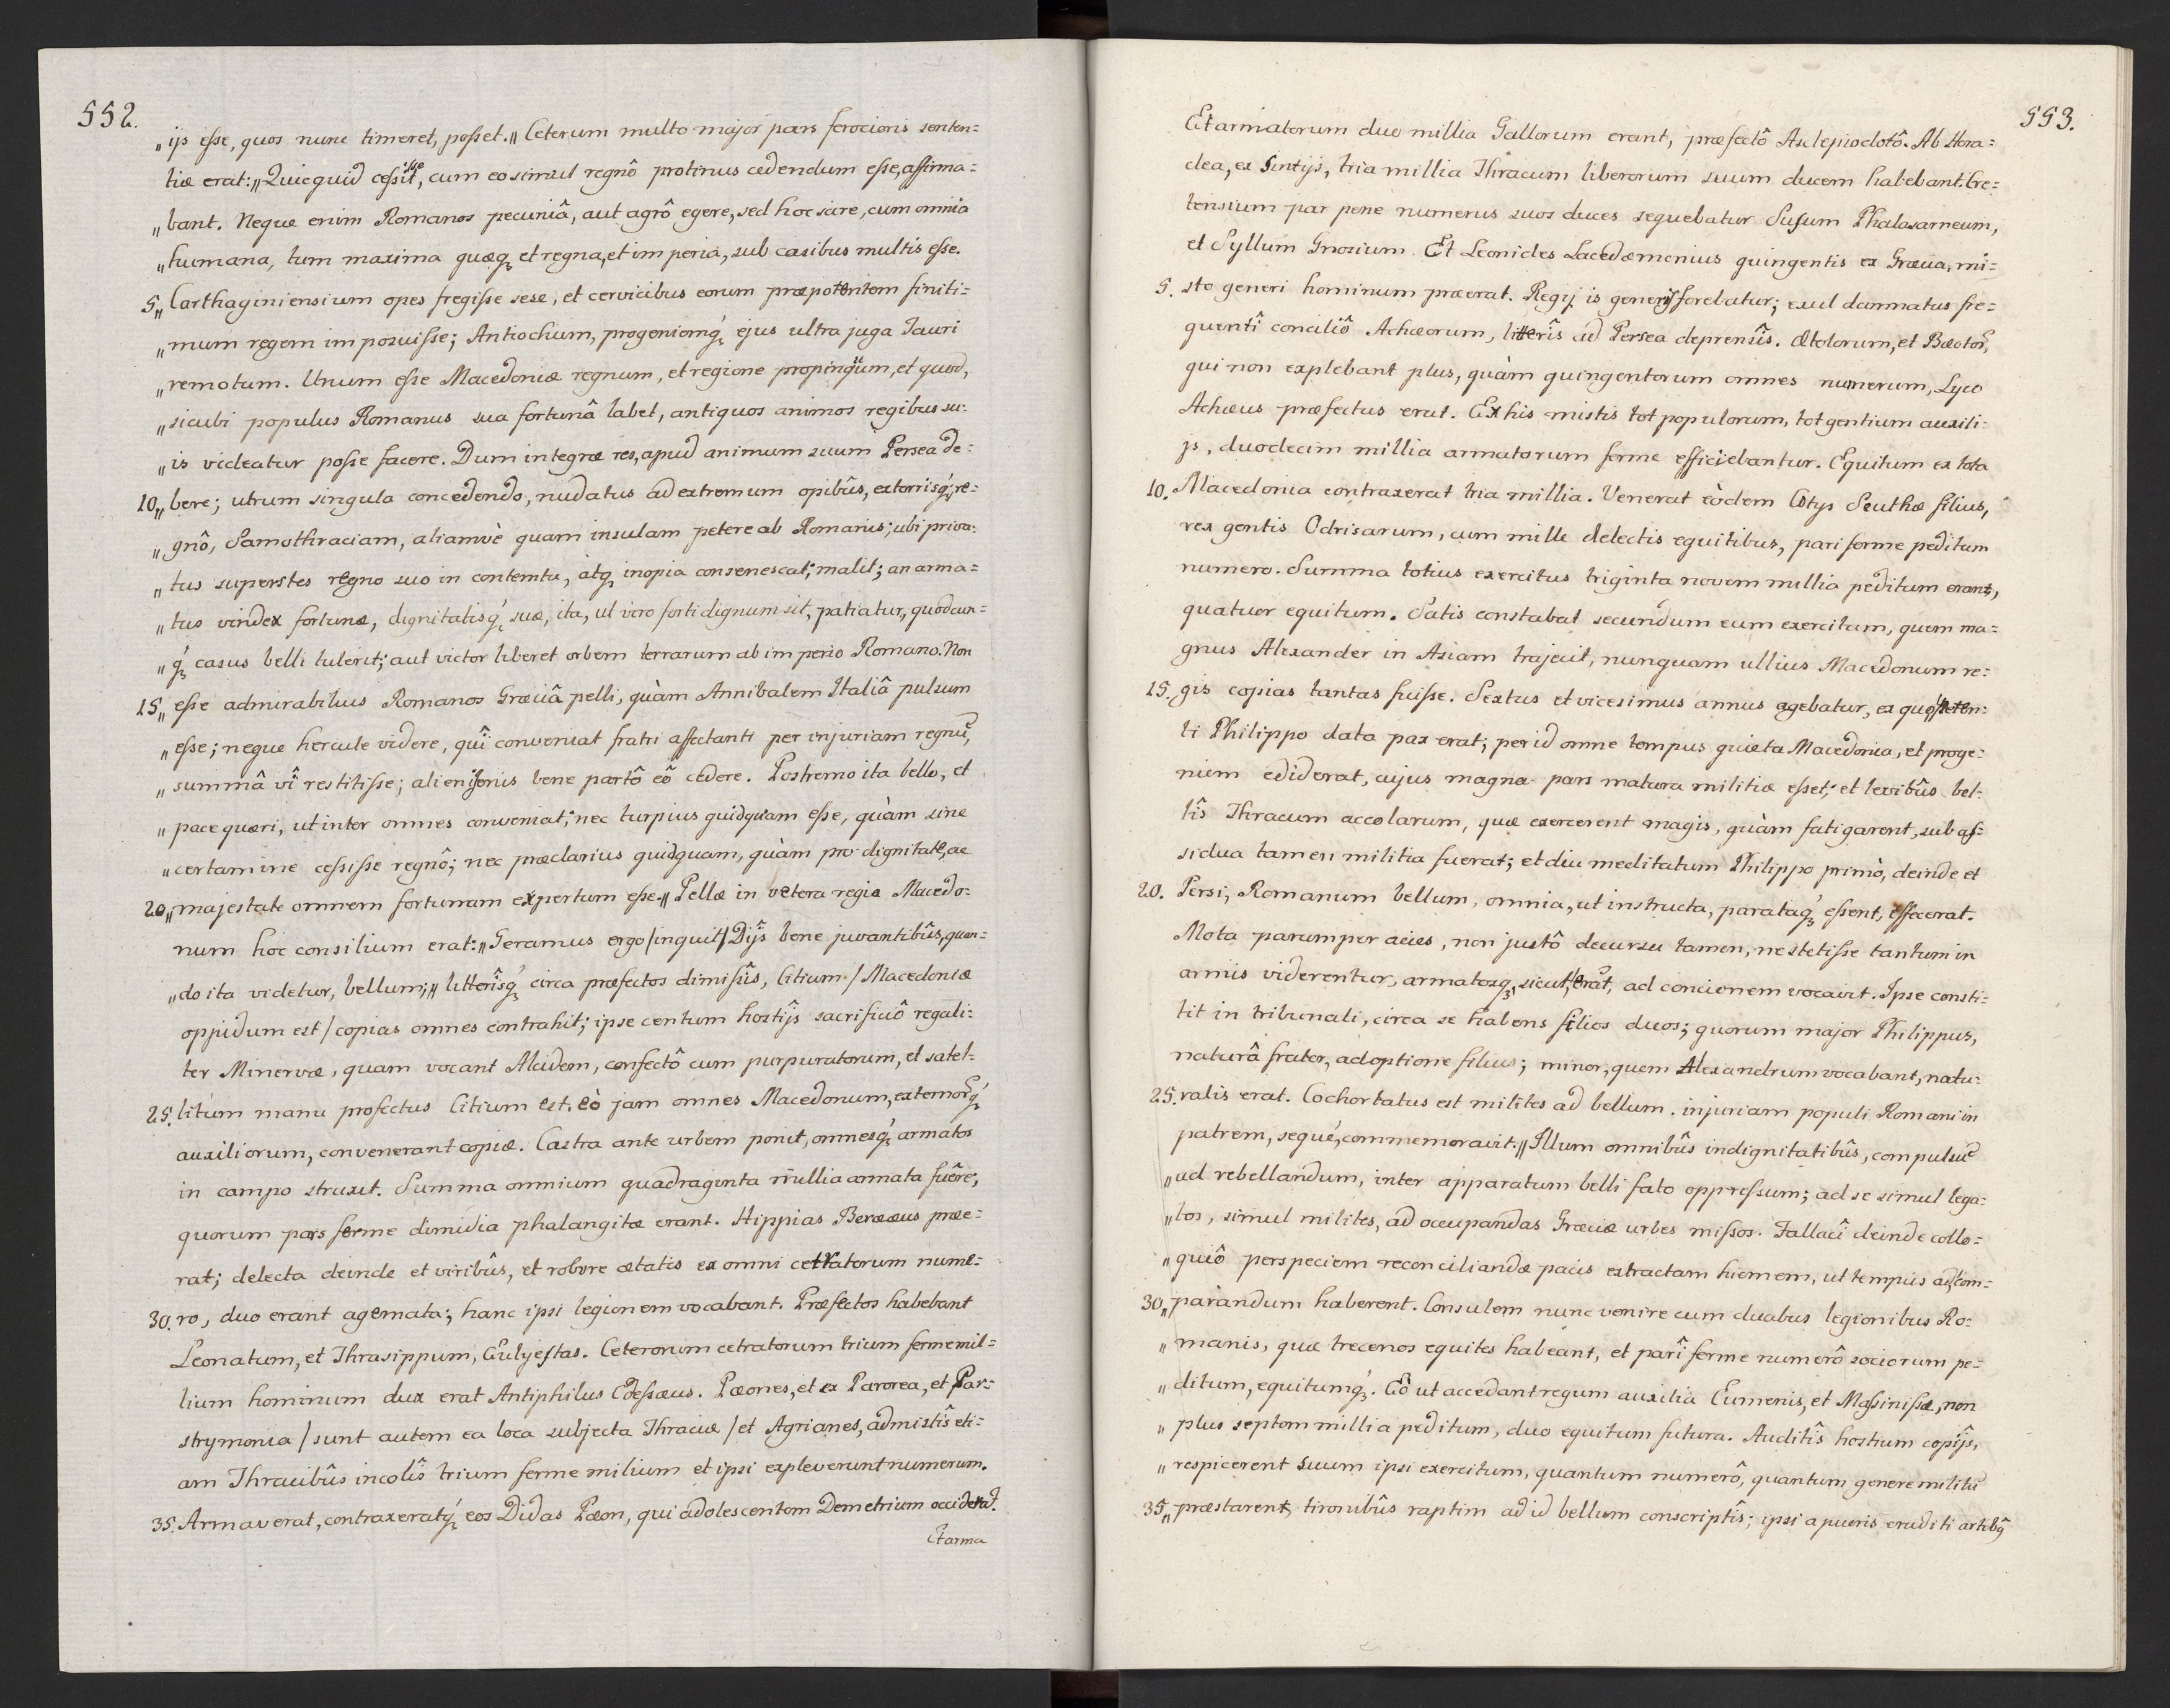 552.
„ijs esse, quos nunc timeret, posset.„ Ceterum multo major pars ferocioris senten=
tiæ erat: „Quicquid cessisset, cum eo simul regnô protinus cedendum esse, affirma=
„bant. Neque enim Romanos pecuniâ, aut agrô egere, sed hoc scire, cum omnia
„humana, tum maxima quæq; et regna, et imperia, sub casibus multis esse.
5. „Carthaginiensium opes fregisse sese, et cervicibus eorum præpotentem finiti=
„mum regem imposuisse; Antiochum, progeniemq́; ejus ultra juga Tauri
„remotum. Unum esse Macedoniæ regnum, et regione propinquum, et quod,
„sicubi populus Romanus sua fortunâ labet, antiquos animos regibus su=
„is videatur posse facere. Dum integræ res, apud animum suum Persea de=
10. „bere; utrum singula concedendo, nudatus ad extremum opibûs, extorrisq́; re=
„gnô, Samothraciam, aliamvè quam insulam petere ab Romanis; ubi priva=
„tus superstes regno suo in contemtu, atq; inopia consenescat; malit; an arma=
„tus vindex fortunæ, dignitatisq́; suæ, ita, ut viro forti dignum sit, patiatur, quodcun=
„q́; casus belli tulerit; aut victor liberet orbem terrarum ab imperio Romano. Non
15. „esse admirabilius Romanos Græciâ pelli, quàm Annibalem Italiâ pulsum
„esse; neque hercule videre, quî conveniat fratri affectanti per injuriam regnū,
„summâ vî restitisse; alienigenis bene partô eô cedere. Postremo ita bello, et
„pace quæri, ut inter omnes conveniat; nec turpius quidquam esse, quàm sine
„certamine cessisse regnô; nec præclarius quidquam, quàm pro dignitate, ac
20. „majestate omnem fortunam expertum esse.„ Pellæ in vetera regia Macedo=
num hoc consilium erat: „Geramus ergo /inquit/ Dijs bene juvantibûs, quan=
„do ita videtur, bellum;„ litterîsq́; circa præfectos dimissîs, Citium / Macedoniæ
oppidum est / copias omnes contrahit; ipse centum hostîjs sacrificiô regali=
ter Minervæ, quam vocant Alcidem, confectô cum purpuratorum, et satel=
25. litum manu profectus Citium est. Eò jam omnes Macedonum, externorq́;
auxiliorum, convenerant copiæ. Castra ante urbem ponit, omnesq́; armatos
in campo struxit. Summa omnium quadraginta millia armata fuêre;
quorum pars ferme dimidia phalangitæ erant. Hippias Beræaeus præe=
rat; delecta deinde et viribûs, et robore ætatis ex omni cetratorum nume=
30. ro, duo erant agemata; hanc ipsi legionem vocabant. Præfectos habebant
Leonatum, et Thrasippum, Eulyestas. Ceterorum cetratorum trium ferme mil=
lium hominum dux erat Antiphilus Edessæus. Pæones, et ex Parorea, et Par=
strymonia / sunt autem ea loca subjecta Thraciæ / et Agrianes, admistîs eti=
am Thracibûs incolîs trium ferme milium et ipsi expleverunt numerum.
35. Armaverat, contraxeratq́; eos Didas Pæon, qui adolescentem Demetrium occiderat.
Et arma
553.
Et armatorum duo millia Gallorum erant, præfectô Asclepiodotô. Ab Hera=
clea, ex Sintijs, tria millia Thracum liberorum suum ducem habebant. Cre=
tensium par pene numerus suos duces sequebatur Susum Phalasarneum,
et Syllum Gnosium. Et Leonides Lacedæmonius quingentis ex Græcia, mi=
5. sto generi hominum præerat. Regij is generis ferebatur; exul damnatus fre=
quentî conciliô Achæorum, litterîs ad Persea deprensîs. Ætolorum, et Bæotor̄,
qui non explebant plus, quàm quingentorum omnes numerum, Lyco
Achæus præfectus erat. Ex his mistis tot populorum, tot gentium auxili=
js, duodecim millia armatorum ferme efficiebantur. Equitum ex tota
10. Macedonia contraxerat tria millia. Venerat eòdem Cotys Seuthæ filius,
rex gentis Odrisarum, cum mille delectis equitibus, pari ferme peditum
numero. Summa totius exercitus triginta novem millia peditum erant,
quatuor equitum. Satis constabat secundum eum exercitum, quem ma=
gnus Alexander in Asiam trajecit, nunquam ullius Macedonum re=
15. gis copias tantas fuisse. Sextus et vicesimus annus agebatur, ex quo peten=
ti Philippo data pax erat; per id omne tempus quieta Macedonia, et proge=
niem ediderat, cujus magna pars matura militiæ esset; et levibûs bel=
lîs Thracum accolarum, quæ exercerent magis, quàm fatigarent, sub as=
sidua tamen militia fuerat; et diu meditatum Philippo primò, deinde et
20. Persi, Romanum bellum, omnia, ut instructa, parataq́; essent, effecerat.
Mota parumper acies, non justô decursu tamen, ne stetisse tantum in
armis viderentur, armatosq́; sicut erāt, ad concionem vocavit. Ipse consti=
tit in tribunali, circa se habens filios duos; quorum major Philippus,
naturâ frater, adoptione filius; minor, quem Alexandrum vocabant, natu=
25. ralis erat. Cohortatus est milites ad bellum. injuriam populi Romani in
patrem, sequé, commemoravit. „Illum omnibûs indignitatibûs, compulsū
„ad rebellandum, inter apparatum belli fato oppressum; ad se simul lega=
„tos, simul milites, ad occupandas Græciæ urbes missos. Fallacî deinde collo=
„quiô per speciem reconciliandæ pacis extractam hiemem, ut tempus ad com=
30. „parandum haberent. Consulem nunc venire cum duabus legionibus Ro=
„manis, quæ trecenos equites habeant, et parî ferme numerô sociorum pe=
„ditum, equitumq́;. Eô ut accedant regum auxilia Eumenis, et Massinissæ, non
„plus septem millia peditum, duo equitum futura. Auditîs hostium copijs,
„respicerent suum ipsi exercitum, quantum numerô, quantum genere militū
35. „præstarent, tironibûs raptim ad id bellum conscriptîs; ipsi a pueris eruditi artibq̄